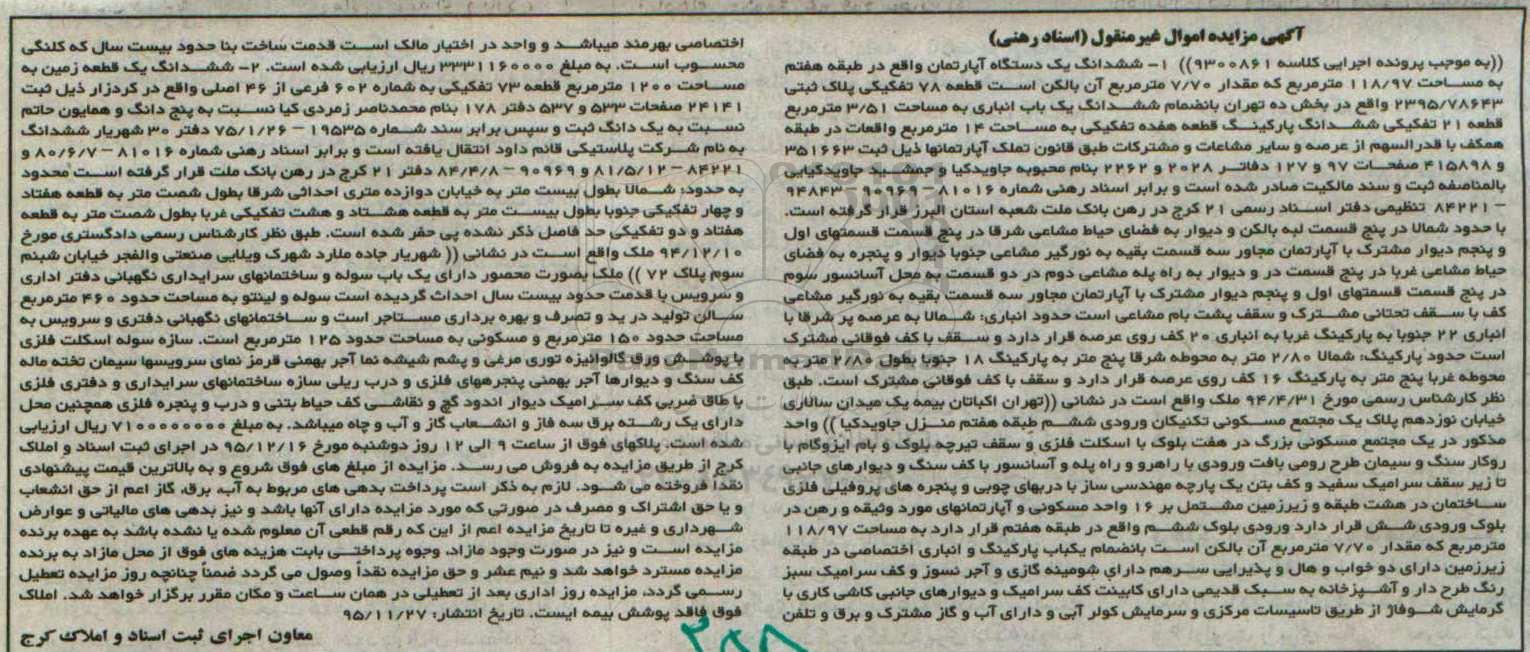 آگهی مزایده اموال غیرمنقول (اسناد رهنی)
((به موجب پرونده اجرایی کلاسه ۹۳۰۰۸۶۱)) ۱- ششدانگ یک دستگاه آپارتمان واقع در طبقه هفتم
به مساحت ۱۱۸/۹۷ مترمربع که مقدار ۷/۷۰ مترمربع آن بالکن است قطعه ۷۸ تفکیکی پلاک ثبتی
۲۳۹۵/۷۸۶۴۳ واقع در بخش ده تهران بانضمام ششدانگ یک باب انباری به مساحت ۳/۵۱ مترمربع
قطعه ۲۱ تفکیکی ششدانگ پارکینگ قطعه هفده تفکیکی به مساحت ۱۴ مترمربع واقعات در طبقه
همکف با قدرالسهم از عرصه و سایر مشاعات و مشترکات طبق قانون تملک آپارتمانها ذیل ثبت ۳۵۱۶۶۳
و ۴۱۵۸۹۸ صفحات ۹۷ و ۱۲۷ دفاتر ۲۰۲۸ و ۲۲۶۲ بنام محبوبه جاویدکیا و جمشید جاویدکیایی
بالمناصفه ثبت و سند مالکیت صادر شده است و برابر اسناد رهنی شماره ۸۱۰۱۶-۹۰۹۶۹-۹۴۸۴۳
- ۸۴۲۲۱ تنظیمی دفتر اسناد رسمی ۲۱ کرج در رهن بانک ملت شعبه استان البرز قرار گرفته است.
با حدود شمالا در پنج قسمت لبه بالکن و دیوار به فضای حیاط مشاعی شرقا در پنج قسمت قسمتهای اول
و پنجم دیوار مشترک با آپارتمان مجاور سه قسمت بقیه به نورگیر مشاعی جنوبا دیوار و پنجره به فضای
حیاط مشاعی غربا در پنج قسمت در و دیوار به راه پله مشاعی دوم در دو قسمت به محل آسانسور سوم
در پنج قسمت قسمتهای اول و پنجم دیوار مشترک با آپارتمان مجاور سه قسمت بقیه به نورگیر مشاعی
کف با سقف تحتانی مشترک و سقف پشت بام مشاعی است حدود انباری: شمالا به عرصه پر شرقا با
انباری ۲۲ جنوبا به پارکینگ غربا به انباری ۲۰ کف روی عرصه قرار دارد و سقف با کف فوقانی مشترک
است حدود پارکینگ: شمالا ۲/۸۰ متر به محوطه شرقا پنج متر به پارکینگ ۱۸ جنوبا بطول ۲/۸۰ متر به
محوطه غربا پنج متر به پارکینگ ۱۶ کف روی عرصه قرار دارد و سقف با کف فوقانی مشترک است. طبق
نظر کارشناس رسمی مورخ ۹۴/۴/۳۱ ملک واقع است در نشانی ((تهران اکباتان بیمه یک میدان سالاری
خیابان نوزدهم پلاک یک مجتمع مسکونی تکنیکان ورودی ششم طبقه هفتم منزل جاویدکیا)) واحد
مذکور در یک مجتمع مسکونی بزرگ در هفت بلوک با اسکلت فلزی و سقف تیرچه بلوک و بام ایزوگام با
روکار سنگ و سیمان طرح رومی بافت ورودی با راهرو و راه پله و آسانسور با کف سنگ و دیوارهای جانبی
تا زیر سقف سرامیک سفید و کف بتن یک پارچه مهندسی ساز با دربهای چوبی و پنجره های پروفیلی فلزی
ساختمان در هشت طبقه و زیرزمین مشتمل بر ۱۶ واحد مسکونی و آپارتمانهای مورد وثیقه و رهن در
بلوک ورودی شش قرار دارد ورودی بلوک ششم واقع در طبقه هفتم قرار دارد به مساحت ۱۱۸/۹۷
مترمربع که مقدار ۷/۷۰ مترمربع آن بالکن است بانضمام یکباب پارکینگ و انباری اختصاصی در طبقه
زیرزمین دارای دو خواب و هال و پذیرایی سرهم دارای شومینه گازی و آجر نسوز و کف سرامیک سبز
رنگ طرح دار و آشپزخانه به سبک قدیمی دارای کابینت کف سرامیک و دیوارهای جانبی کاشی کاری با
گرمایش شوفاژ از طریق تاسیسات مرکزی و سرمایش کولر آبی و دارای آب و گاز مشترک و برق و تلفن
اختصاصی بهرمند میباشد و واحد در اختیار مالک است قدمت ساخت بنا حدود بیست سال که کلنگی
محسوب است. به مبلغ ۳۳۳۱۱۶۰۰۰۰ ریال ارزیابی شده است. ۲- ششدانگ یک قطعه زمین به
مساحت ۱۲۰۰ مترمربع قطعه ۷۳ تفکیکی به شماره ۶۰۲ فرعی از ۴۶ اصلی واقع در کردزار ذیل ثبت
۲۴۱۴۱ صفحات ۵۳۳ و ۵۳۷ دفتر ۱۷۸ بنام محمدناصر زمردی کیا نسبت به پنج دانگ و همایون حاتم
نسبت به یک دانگ ثبت و سپس برابر سند شماره ۱۹۵۳۵ - ۷۵/۱/۲۶ دفتر ۳۰ شهریار ششدانگ
به نام شرکت پلاستیکی قائم داود انتقال یافته است و برابر اسناد رهنی شماره ۸۱۰۱۶ - ۸۰/۶/۷ و
۸۴۲۲۱ - ۸۱/۵/۱۲ و ۹۰۹۶۹ - ۸۴/۴/۸ دفتر ۲۱ کرج در رهن بانک ملت قرار گرفته است محدود
به حدود: شمالا بطول بیست متر به خیابان دوازده متری احداثی شرقا بطول شصت متر به قطعه هفتاد
و چهار تفکیکی جنوبا بطول بیست متر به قطعه هشتاد و هشت تفکیکی غربا بطول شصت متر به قطعه
هفتاد و دو تفکیکی حد فاصل ذکر نشده پی حفر شده است. طبق نظر کارشناس رسمی دادگستری مورخ
۹۴/۱۲/۱۰ ملک واقع است در نشانی ((شهریار جاده ملارد شهرک ویلایی صنعتی والفجر خیابان شبنم
سوم پلاک ۷۲)) ملک بصورت محصور دارای یک باب سوله و ساختمانهای سرایداری نگهبانی دفتر اداری
و سرویس با قدمت حدود بیست سال احداث گردیده است سوله و لینتو به مساحت حدود ۴۶۰ مترمربع
سالن تولید در ید و تصرف و بهره برداری مستاجر است و ساختمانهای نگهبانی دفتری و سرویس به
مساحت حدود ۱۵۰ مترمربع و مسکونی به مساحت حدود ۱۲۵ مترمربع است. سازه سوله اسکلت فلزی
با پوشش ورق گالوانیزه توری مرغی و پشم شیشه نما آجر بهمنی قرمز نمای سرویسها سیمان تخته ماله
کف سنگ و دیوارها آجر بهمنی پنجرههای فلزی و درب ریلی سازه ساختمانهای سرایداری و دفتری فلزی
با طاق ضربی کف سرامیک دیوار اندود گچ و نقاشی کف حیاط بتنی و درب و پنجره فلزی همچنین محل
دارای یک رشته برق سه فاز و انشعاب گاز و آب و چاه میباشد. به مبلغ ۷۱۰۰۰۰۰۰۰۰ ریال ارزیابی
شده است. پلاکهای فوق از ساعت ۹ الی ۱۲ روز دوشنبه مورخ ۹۵/۱۲/۱۶ در اجرای ثبت اسناد و املاک
کرج از طریق مزایده به فروش می رسد. مزایده از مبلغ های فوق شروع و به بالاترین قیمت پیشنهادی
نقداً فروخته می شود. لازم به ذکر است پرداخت بدهی های مربوط به آب، برق، گاز اعم از حق انشعاب
و یا حق اشتراک و مصرف در صورتی که مورد مزایده دارای آنها باشد و نیز بدهی های مالیاتی و عوارض
شهرداری و غیره تا تاریخ مزایده اعم از این که رقم قطعی آن معلوم شده یا نشده باشد به عهده برنده
مزایده است و نیز در صورت وجود مازاد، وجوه پرداختی بابت هزینه های فوق از محل مازاد به برنده
مزایده مسترد خواهد شد و نیم عشر و حق مزایده نقداً وصول می گردد ضمناً چنانچه روز مزایده تعطیل
رسمی گردد، مزایده روز اداری بعد از تعطیلی در همان ساعت و مکان مقرر برگزار خواهد شد. املاک
فوق فاقد پوشش بیمه ایست. تاریخ انتشار: ۹۵/۱۱/۲۷
معاون اجرای ثبت اسناد و املاک کرج